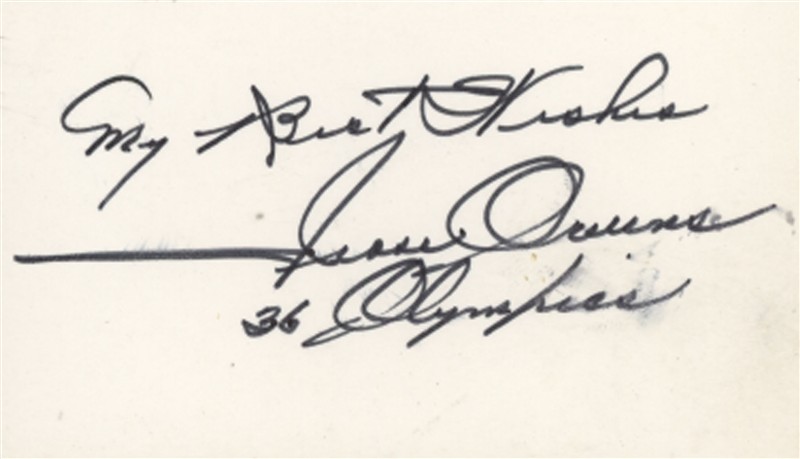 My Best Wishes
Jesse Owens
36 Olympics